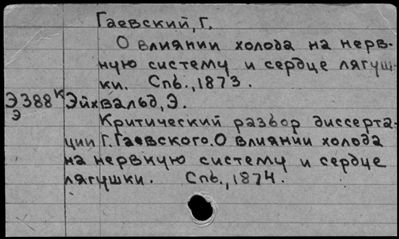 Гаевский, Г.
О влиянии холода на нерв-
ную систему и сердце лягуш-
ки. Спб., 1873.
Э388 к Эйхвальд, Э.
Э Критический разбор диссерта-
ции Г. Гаевского. О влиянии холода
на нервную систему и сердце
лягушки. Спб., 1874.